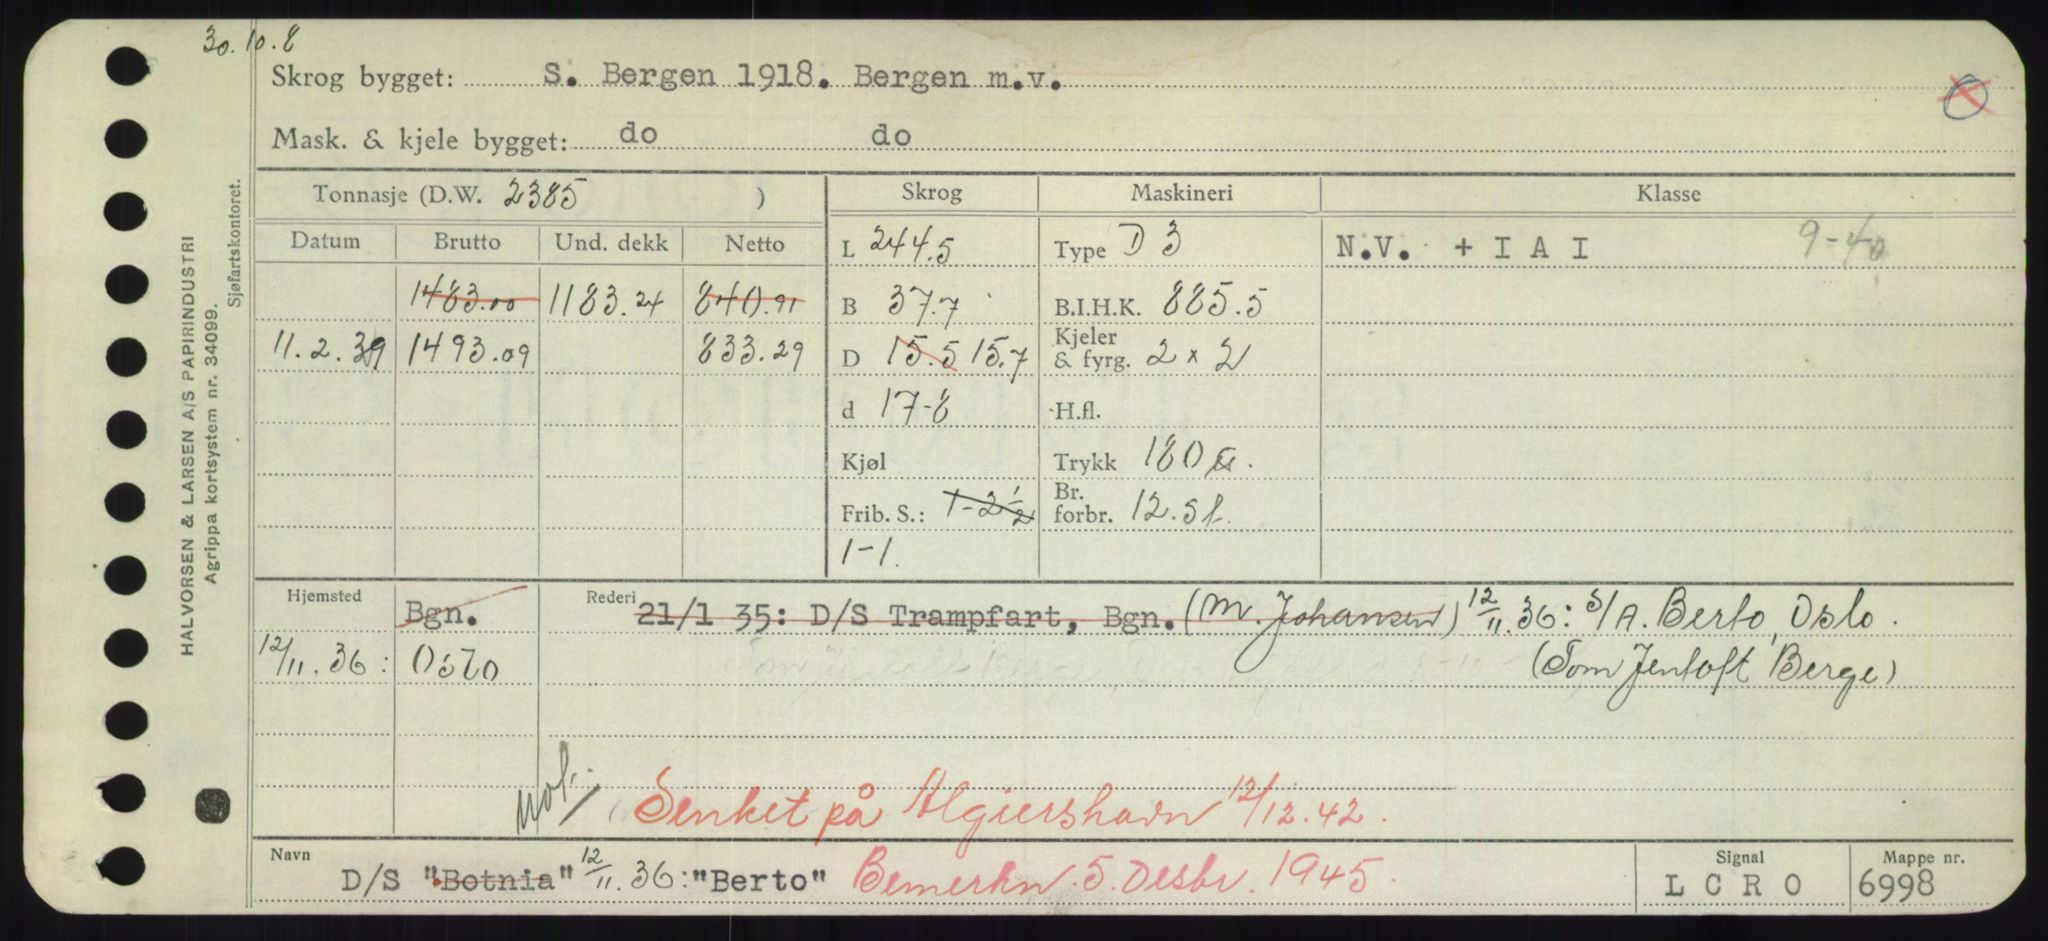 30.10.8
Skrog bygget: S. Bergen 1918. Bergen m.v.
Mask. & kjele bygget: do do
HALVORSEN & LARSEN A/S PAPIRINDUSTRI
Agrippa kortsystem nr. 34099.
Sjøfartskontoret.
Tonnasje (D.W. 2385 ) Skrog Maskineri Klasse
Datum Brutto Und. dekk Netto L 244.5 Type D 3 N.V. + I A I 9-40
1483.00 1183.24 840.91 B 37.7 B.I.H.K. 885.5
11.2.39 1493.09 833.29 D 15.5 15.7 Kjeler & fyrg. 2 x 2
d 17-8 H.fl.
Kjøl Trykk 180
Frib. S.: 1-2 1/2 Br. forbr. 12.5
1-1.
Hjemsted Bgn. Rederi 21/1 35: D/S Trampfart, Bgn. (M. Johansen) 12/11.36: S/A. Berto, Oslo.
12/11.36: Oslo (Tom Jentoft Berge)
Senket på Algiershavn 12/12.42.
Navn D/S "Botnia" 12/11.36: "Berto" Bemerkn. 5. Desbr. 1945. Signal L C R O Mappe nr. 6998